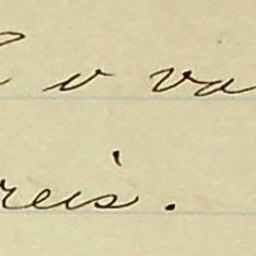 o va
reis.